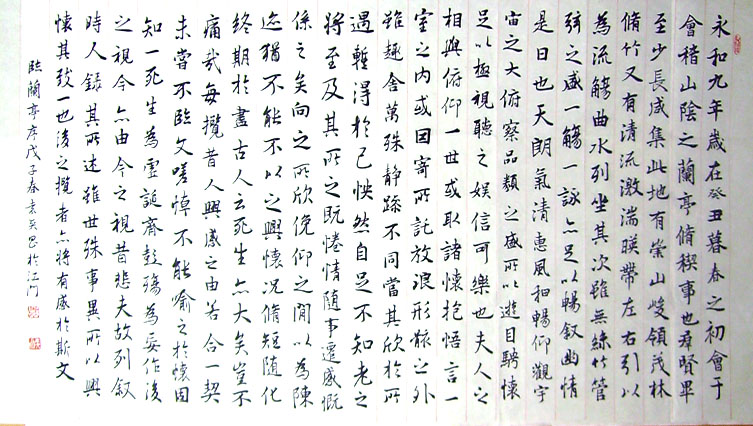 永和九年歲在癸丑暮春之初會于
會稽山陰之蘭亭脩禊事也羣賢畢
至少長咸集此地有崇山峻領茂林
脩竹又有清流激湍暎帶左右引以
為流觴曲水列坐其次雖無絲竹管
弦之盛一觴一詠亦足以暢叙幽情
是日也天朗氣清惠風和暢仰觀宇
宙之大俯察品類之盛所以遊目騁懷
足以極視聽之娛信可樂也夫人之
相與俯仰一世或取諸懷抱悟言一
室之內或因寄所託放浪形骸之外
雖趣舍萬殊静躁不同當其欣於所
遇暫得於己怏然自足不知老之
將至及其所之既惓情隨事遷感慨
係之矣向之所欣俛仰之閒以為陳
迹猶不能不以之興懷況脩短隨化
終期於盡古人云死生亦大矣豈不
痛哉每攬昔人興感之由若合一契
未嘗不臨文嗟悼不能喻之於懷固
知一死生為虛誕齊彭殤為妄作後
之視今亦由今之視昔悲夫故列叙
時人錄其所述雖世殊事異所以興
懷其致一也後之攬者亦將有感於斯文
臨蘭亭序戊子春袁於江門